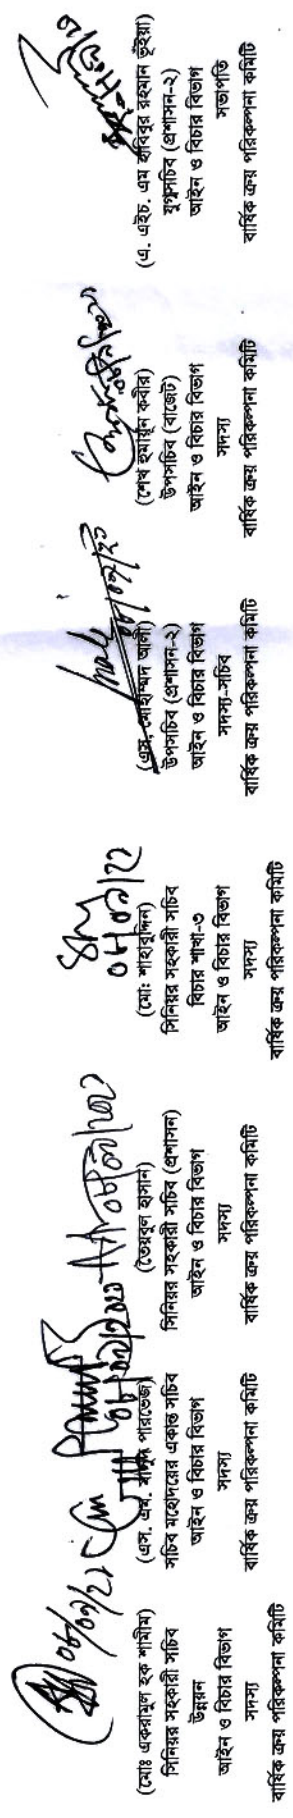 ০৮/০৯/২১
(মোঃ একরামুল হক শামীম)
সিনিয়র সহকারী সচিব
উন্নয়ন
আইন ও বিচার বিভাগ
সদস্য
বার্ষিক ক্রয় পরিকল্পনা কমিটি
(এস. এম. মাসুদ পারভেজ)
সচিব মহোদয়ের একান্ত সচিব
আইন ও বিচার বিভাগ
সদস্য
বার্ষিক ক্রয় পরিকল্পনা কমিটি
(তৈয়বুল হাসান)
সিনিয়র সহকারী সচিব (প্রশাসন)
আইন ও বিচার বিভাগ
সদস্য
বার্ষিক ক্রয় পরিকল্পনা কমিটি
(মোঃ শাহাবুদ্দিন)
সিনিয়র সহকারী সচিব
বিচার শাখা-৩
আইন ও বিচার বিভাগ
সদস্য
বার্ষিক ক্রয় পরিকল্পনা কমিটি
(এস. মোহাম্মদ আলী)
উপসচিব (প্রশাসন-২)
আইন ও বিচার বিভাগ
সদস্য-সচিব
বার্ষিক ক্রয় পরিকল্পনা কমিটি
(শেখ হুমায়ুন কবীর)
উপসচিব (বাজেট)
আইন ও বিচার বিভাগ
সদস্য
বার্ষিক ক্রয় পরিকল্পনা কমিটি
(এ. এইচ. এম হাবিবুর রহমান ভূঁইয়া)
যুগ্মসচিব (প্রশাসন-২)
আইন ও বিচার বিভাগ
সভাপতি
বার্ষিক ক্রয় পরিকল্পনা কমিটি